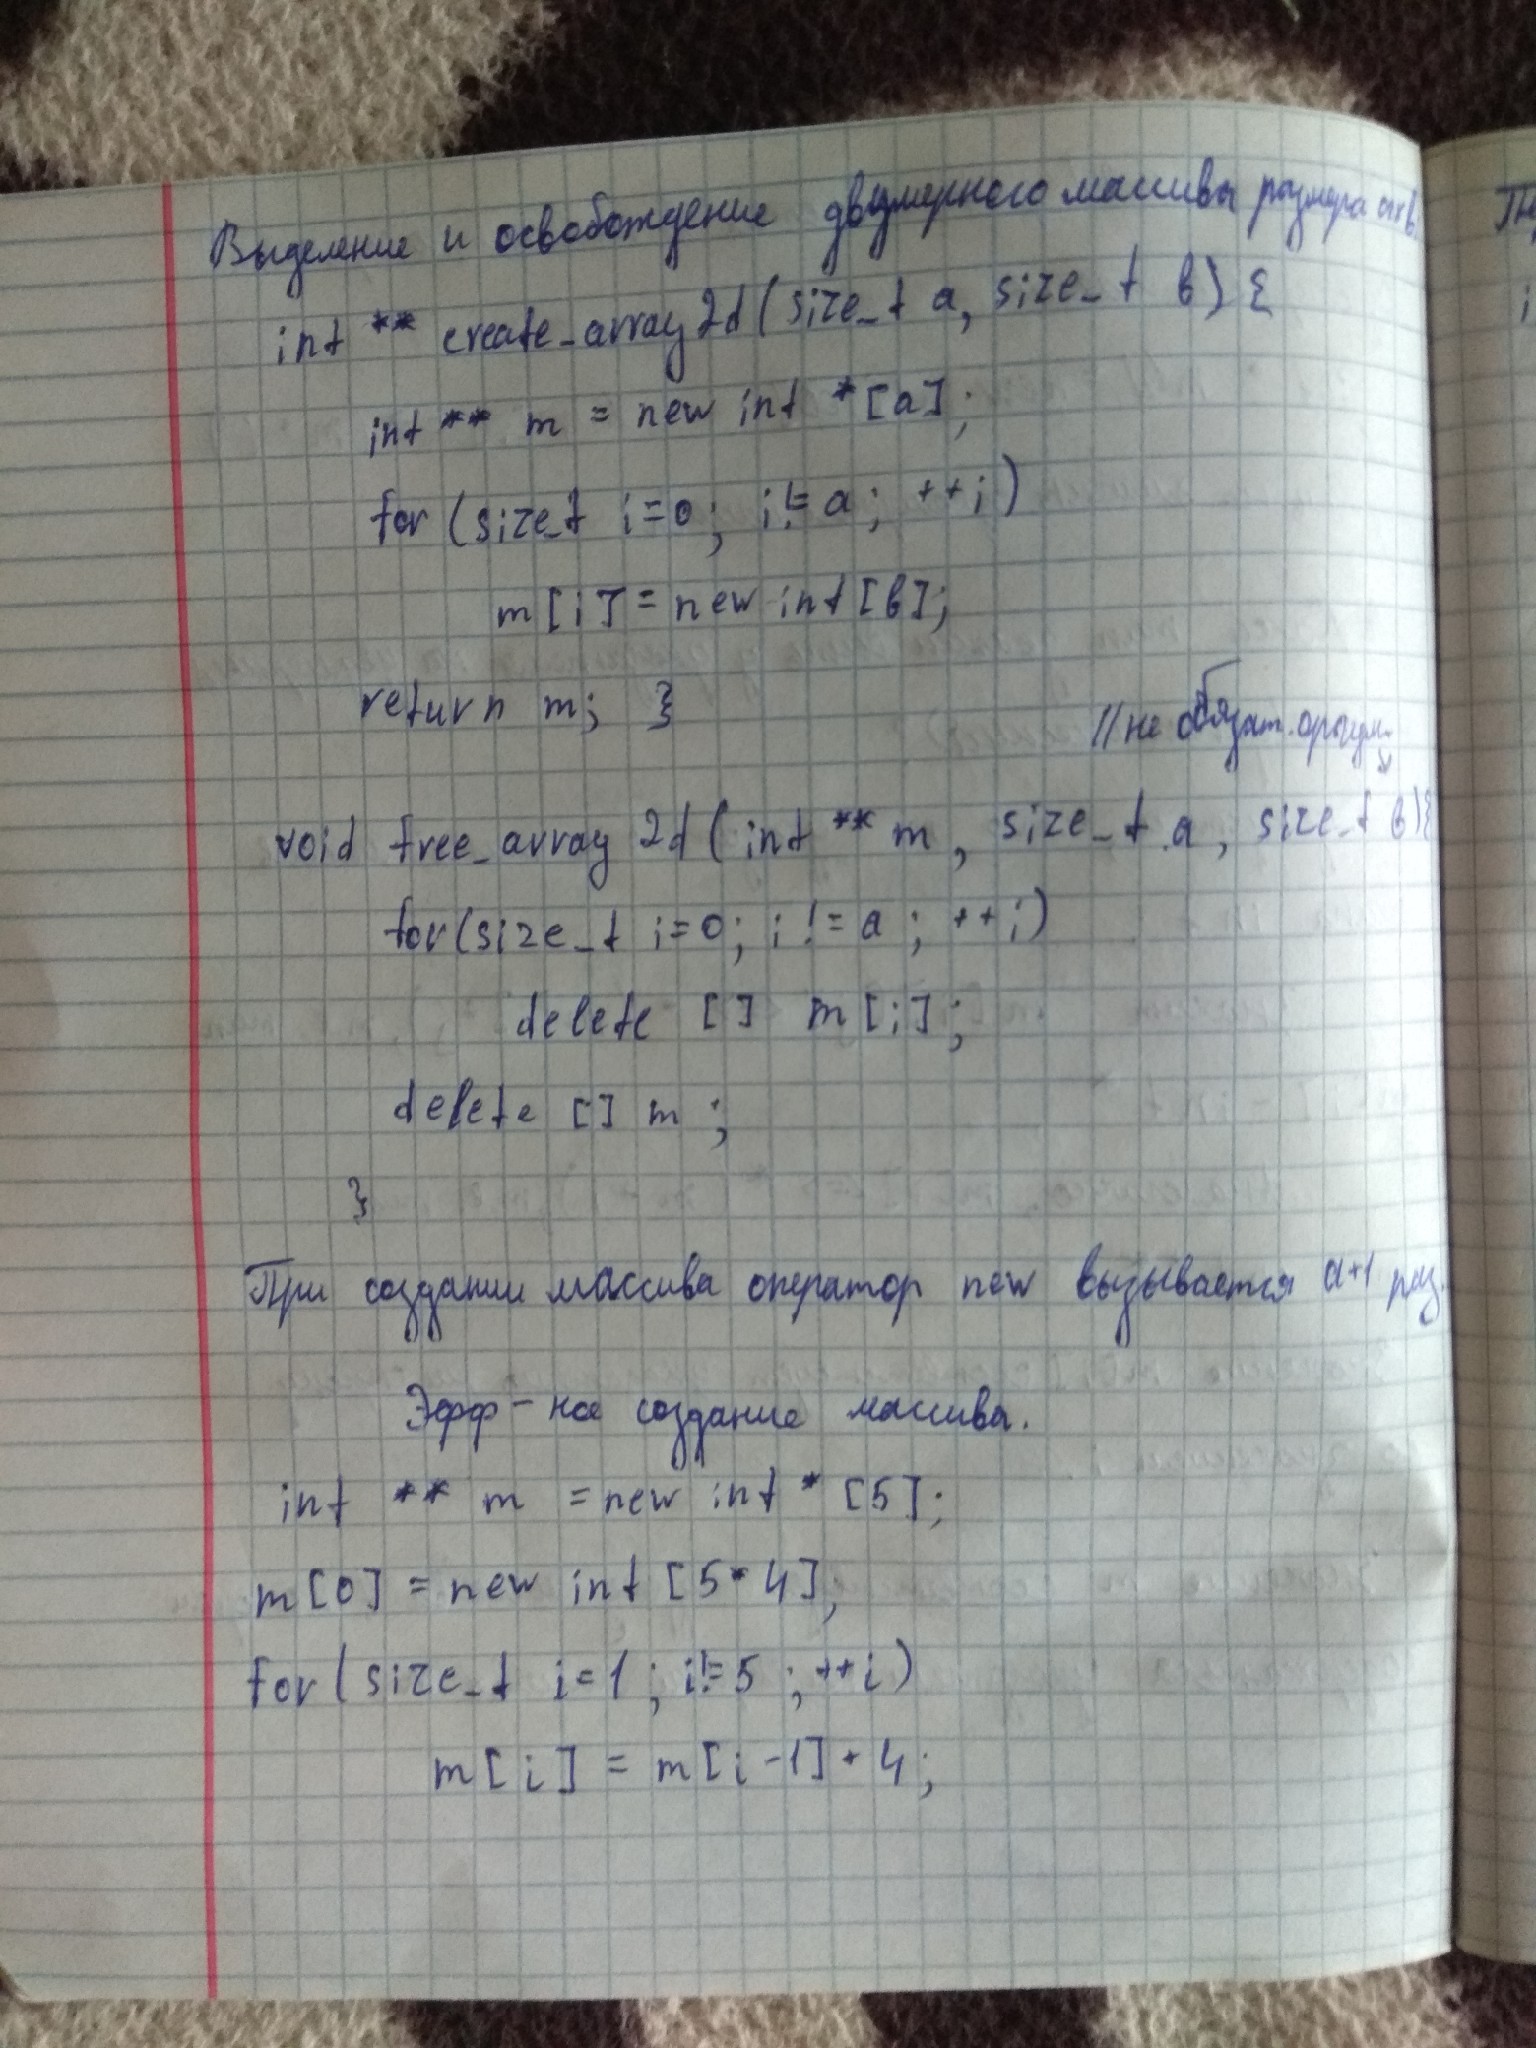 Выделение и освобождение двумерного массивы размера axb.
int ** create_array2d(size_t a, size_t b) {
int ** m = new int *[a];
for (size_t i=0; i!=a; ++i)
m[i]=new int[b];
return m; }
//не обязат. аргум.
void free_array2d(int ** m, size_t a, size_t b){
for(size_t i=0; i!=a; ++i)
delete [] m[i];
delete [] m;
}
При создании массива оператор new вызывается a+1 раз.
Эфф-ное создание массива.
int ** m = new int * [5];
m[0] = new int [5*4];
for(size_t i=1; i!=5; ++i)
m[i] = m[i-1] + 4;